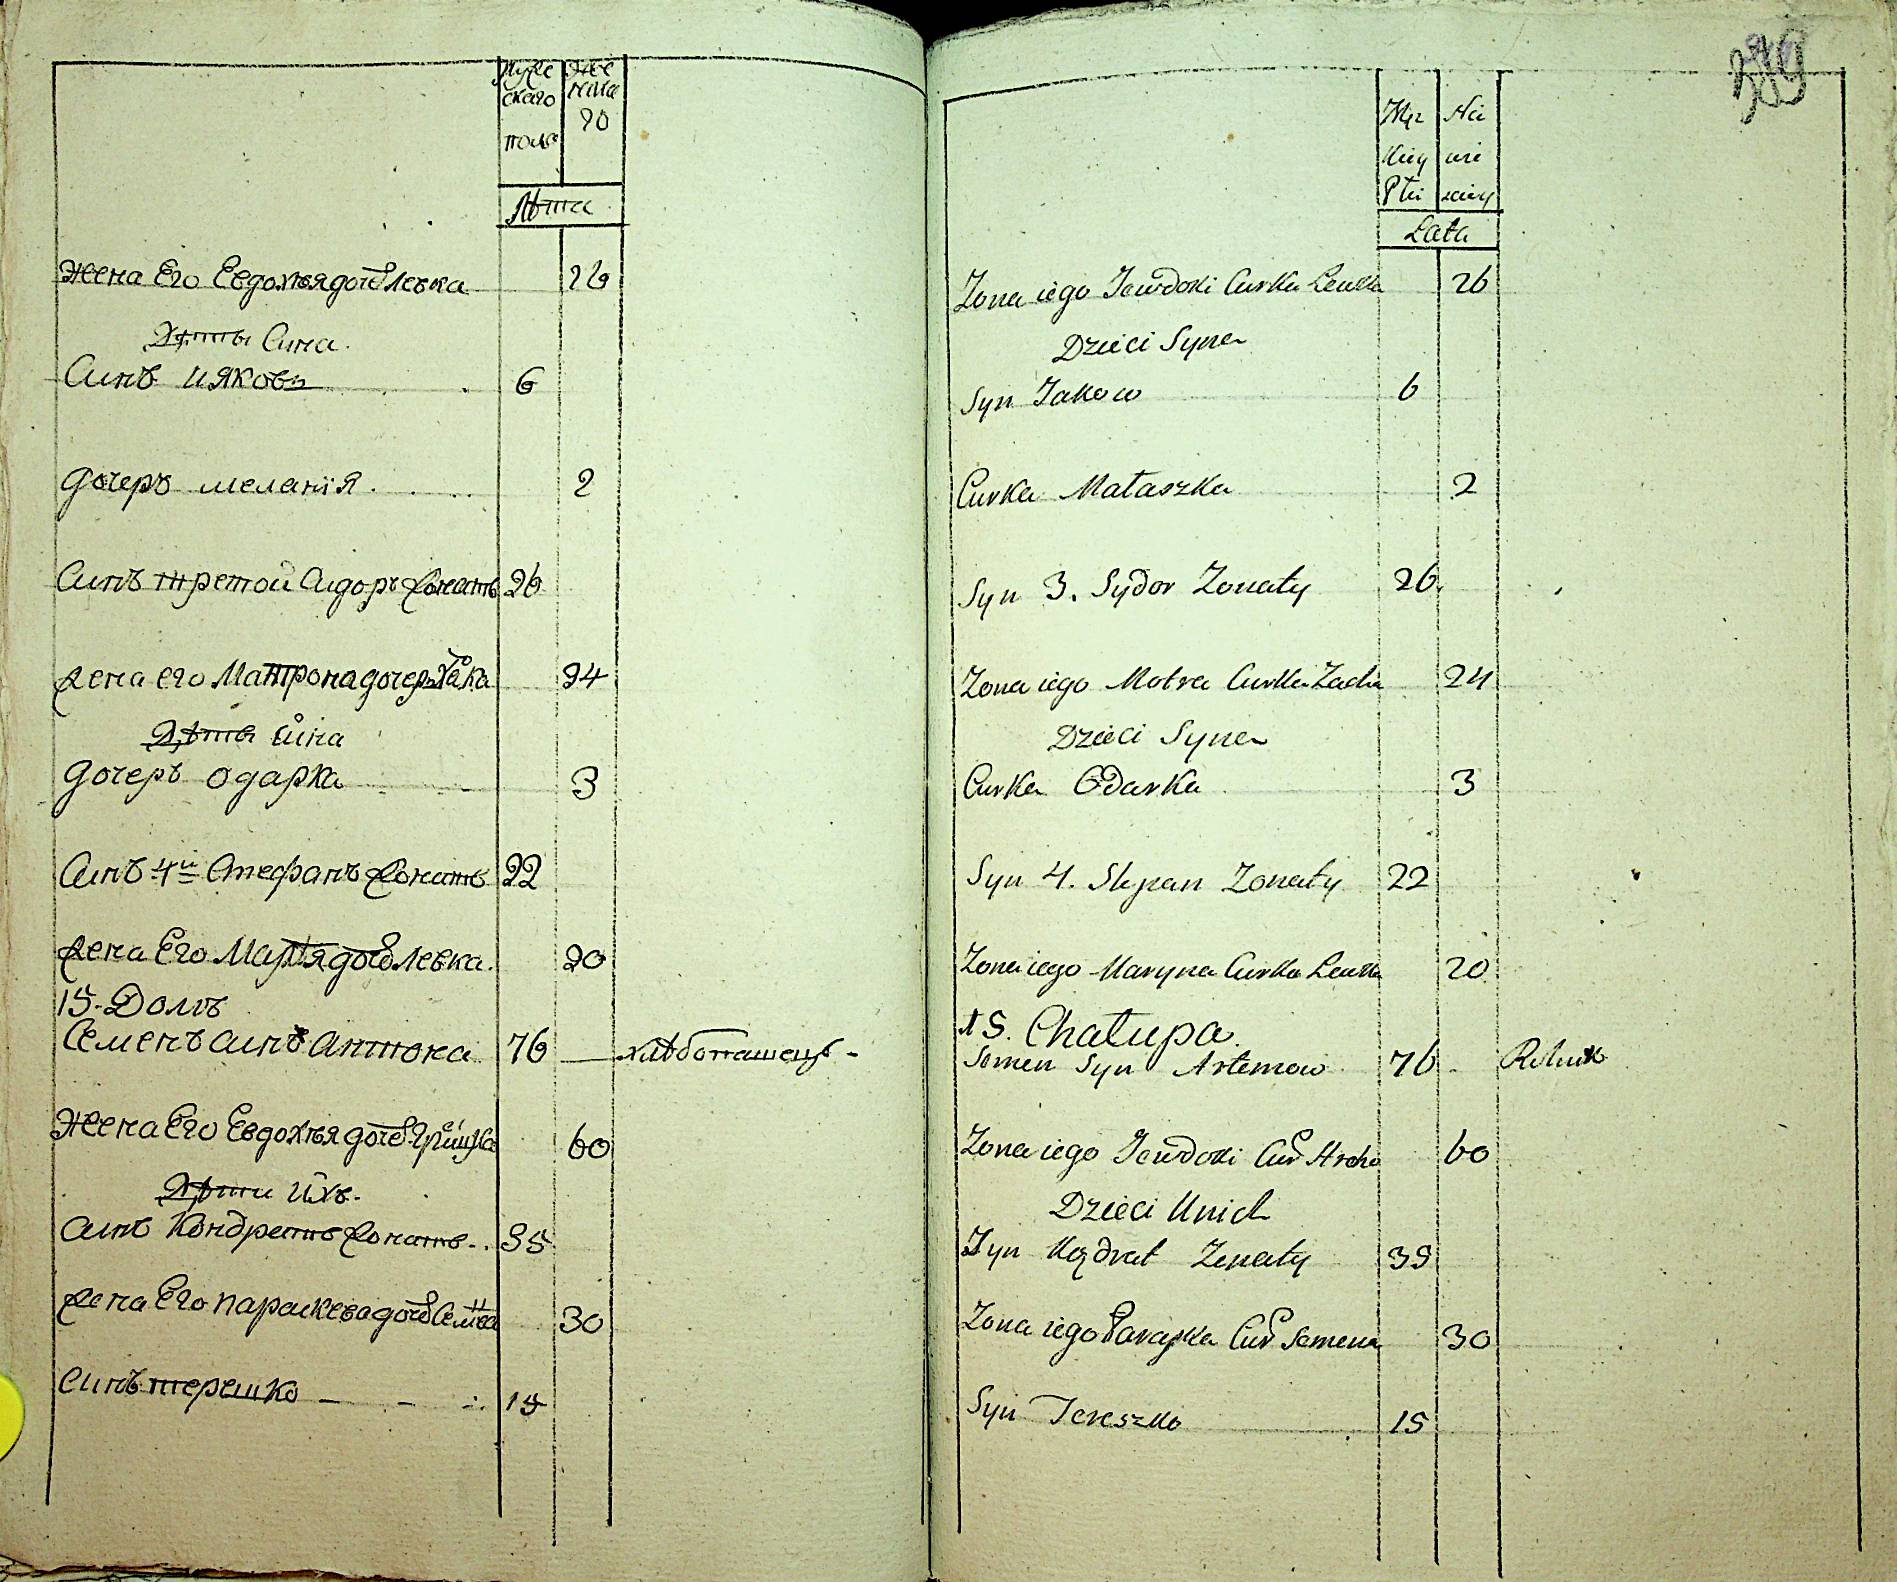 Муже
скаго
полу
Же
нска
го
Лѣта
Жена Его Евдокѣя доч Левка 26
Дѣты Сина
Синъ ияковъ 6
дочеръ меланія 2
Синъ третой Сидоръ Жонатъ 26
Жена его Матрона дочеръ 24
Дѣты Сина
дочеръ одарка 3
Синъ 4й Стефанъ Жонатъ 22
Жена Его Марія доч Левка 20
15. Домъ
Семенъ синъ Антона 76 хлѣбопашецъ
Жена Его Евдокѣя доч Гришка 60
Дѣти ихъ
Синъ Кондратъ Жонатъ 35
Жена Его параскева доч Семена 30
Синъ терешко 15
389
Męz
kiey
Płci
Na
wie
sciey
Lata
Zona iego Jewdoki Curka Lewka 26
Dzieci Syna
Syn Jakow 6
Curka Małaszka 2
Syn 3. Sydor Zonaty 26
Zona iego Motra Curka Zacha 24
Dzieci Syna
Curka Odarka 3
Syn 4. Stepan Zonaty 22
Zona iego Maryna Curka Lewka 20
15. Chałupa
Semen Syn Artemow 76 Rolnik
Zona iego Jewdoki Cur 60
Dzieci Unich
Syn Kądrat Zonaty 35
Zona iego Paraska Cur Semena 30
Syn Tereszko 15